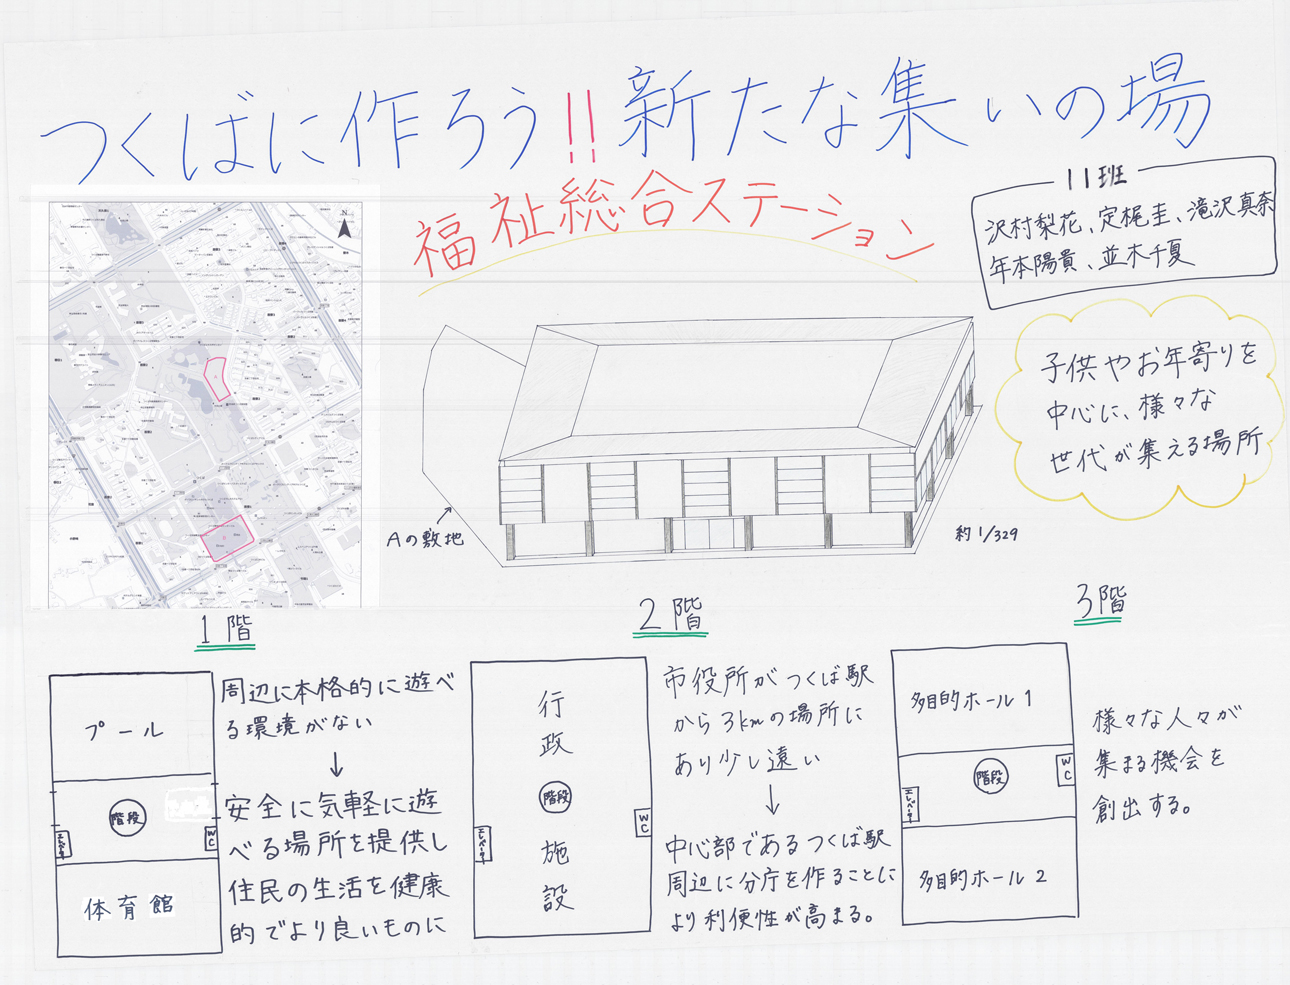 つくばに作ろう!!新たな集いの場
福祉総合ステーション
11班
沢村梨花、定梶圭、滝沢真奈
年本陽貴、並木千夏
子供やお年寄りを
中心に、様々な
世代が集える場所
N
A
B
Aの敷地
約1/329
1階
プール
階段
エレベーター
WC
体育館
周辺に本格的に遊べ
る環境がない
↓
安全に気軽に遊
べる場所を提供し
住民の生活を健康
的でより良いものに
2階
行政
階段
施設
エレベーター
WC
市役所がつくば駅
から3kmの場所に
あり少し遠い
↓
中心部であるつくば駅
周辺に分庁を作ることに
より利便性が高まる。
3階
多目的ホール1
階段
エレベーター
WC
多目的ホール2
様々な人々が
集まる機会を
創出する。